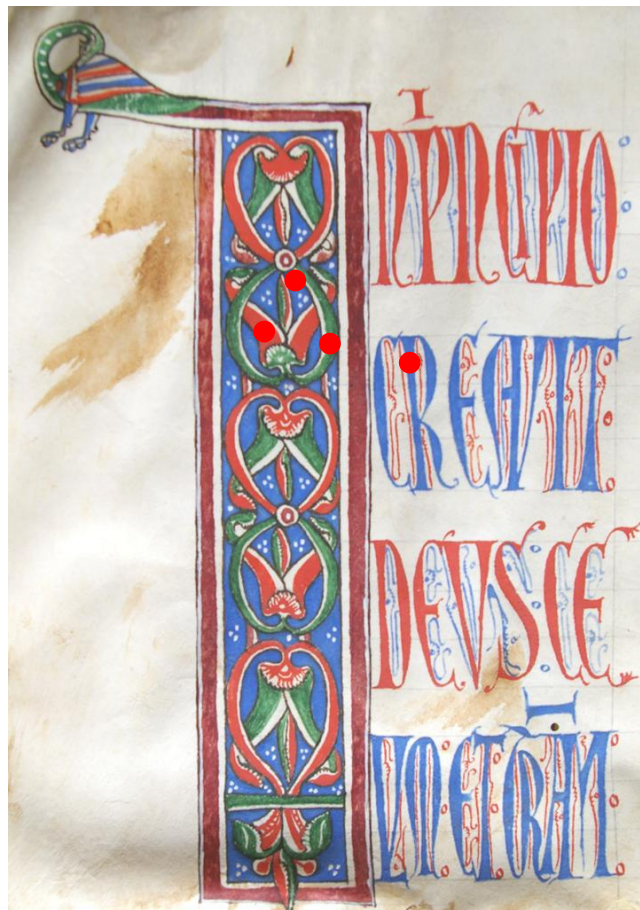 INPINCIPIO
CREAVIT
DEVS CE
LVM ET TRAM